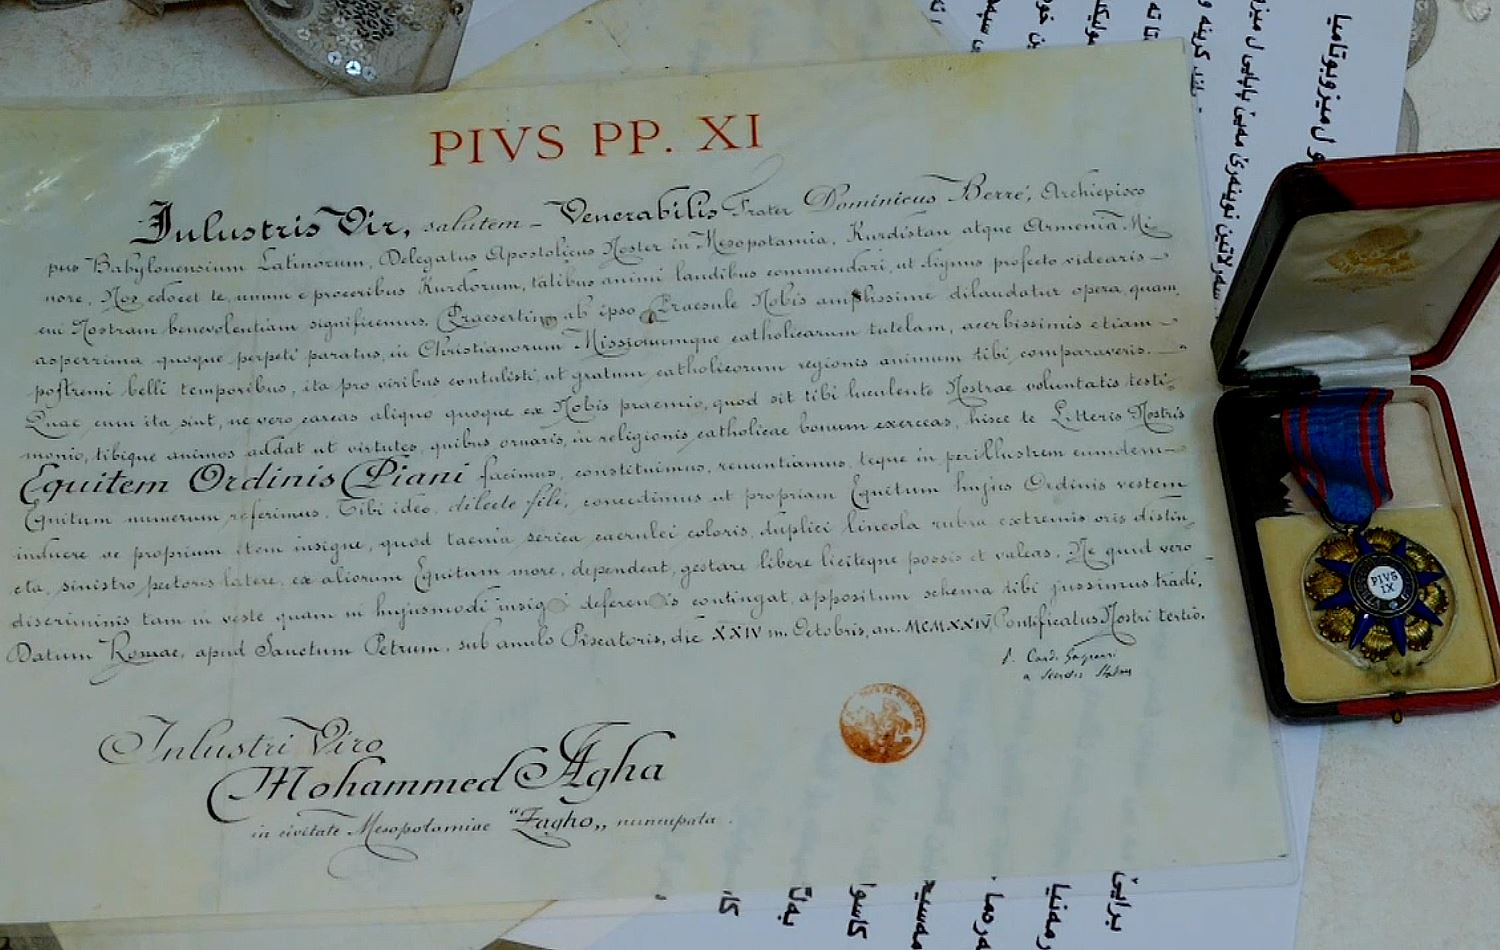 PIVS PP. XI
Inlustris Vir, salutem – Venerabilis Frater Dominicus Berré, Archiepisco
pus Babylonensium Latinorum, Delegatus Apostolicus Noster in Mesopotamia, Kurdistan atque Armenia Mi
nore, Nos edocet te, unum e proceribus Kurdorum, talibus animi laudibus commendari, ut dignus profecto videaris
cui Nostram benevolentiam significemus. Praesertim ab ipso Praesule Nobis amplissime dilaudatur opera, quam,
asperrima quoque perpeti paratus, in Christianorum Missionumque catholicarum tutelam, acerbissimis etiam
postremi belli temporibus, ita pro viribus contulisti, ut gratum catholicorum regionis animum tibi comparaveris.
Quae cum ita sint, ne vero careas aliquo quoque ex Nobis praemio, quod sit tibi luculento Nostrae voluntatis testi=
monio, tibique animos addat ut virtutes, quibus ornaris, in religionis catholicae bonum exerceas, hisce te Litteris Nostris
Equitem Ordinis Piani facimus, constituimus, renuntiamus, teque in perillustrem eumdem
Equitum numerum referimus. Tibi ideo, dilecte fili, concedimus ut propriam Equitum hujus Ordinis vestem
induere ac proprium item insigne, quod taenia serica caerulei coloris, duplici lineola rubra extremis oris distin,
cta, sinistro pectoris latere, ex aliorum Equitum more, dependeat, gestare libere liciteque possis et valeas. Ne quid vero
discriminis tam in veste quam in hujusmodi insigni deferendis contingat, appositum schema tibi jussimus tradi.
Datum Romae, apud Sanctum Petrum, sub anulo Piscatoris, die XXIV m. Octobris, an. MCMXXIV, Pontificatus Nostri tertio.
P. Card. Gasparri
a Secretis Status
Inlustri Viro
Mohammed Agha
in civitate Mesopotamiae "Zagho„ nuncupata.
PIVS
IX